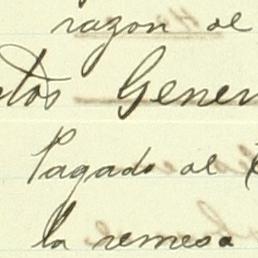 razon al
tos Gener
Pagado al
la remesa